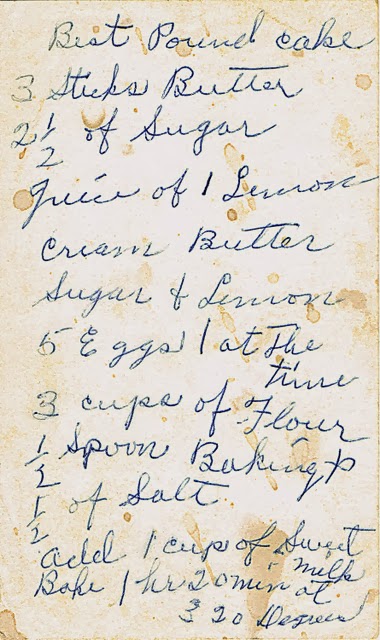 Best Pound cake
3 Sticks Butter
2 1/2 of Sugar
Juice of 1 Lemon
Cream Butter
Sugar & Lemon
5 Eggs 1 at The
time
3 cups of Flour
1/2 Spoon Baking P
1/2 of Salt
add 1 cup of Sweet
Milk
Bake 1 hr 20 min at
320 Degrees